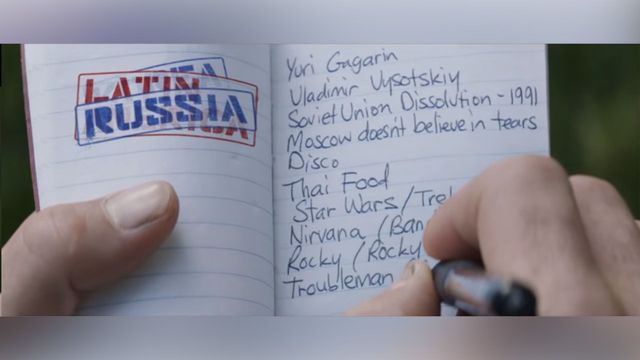 LATIN
RUSSIA
Yuri Gagarin
Vladimir Vysotskiy
Soviet Union Dissolution - 1991
Moscow doesn't believe in tears
Disco
Thai Food
Star Wars /
Nirvana /
Rocky / (Rocky
Troubleman